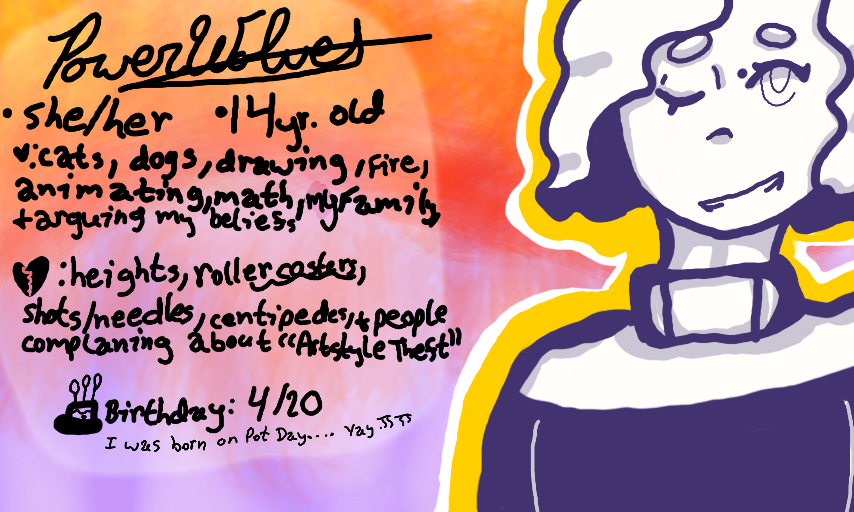 PowerWolves
• she/her •14yr. old
♥:cats, dogs, drawing, Fire,
animating, math, my Family,
+ arguing my beliess
💔:heights, roller casters,
shots/needles, centipedes, + people
complaning about "Artstyle Thest"
Birthday: 4/20
I was born on Pot Day.... Yay